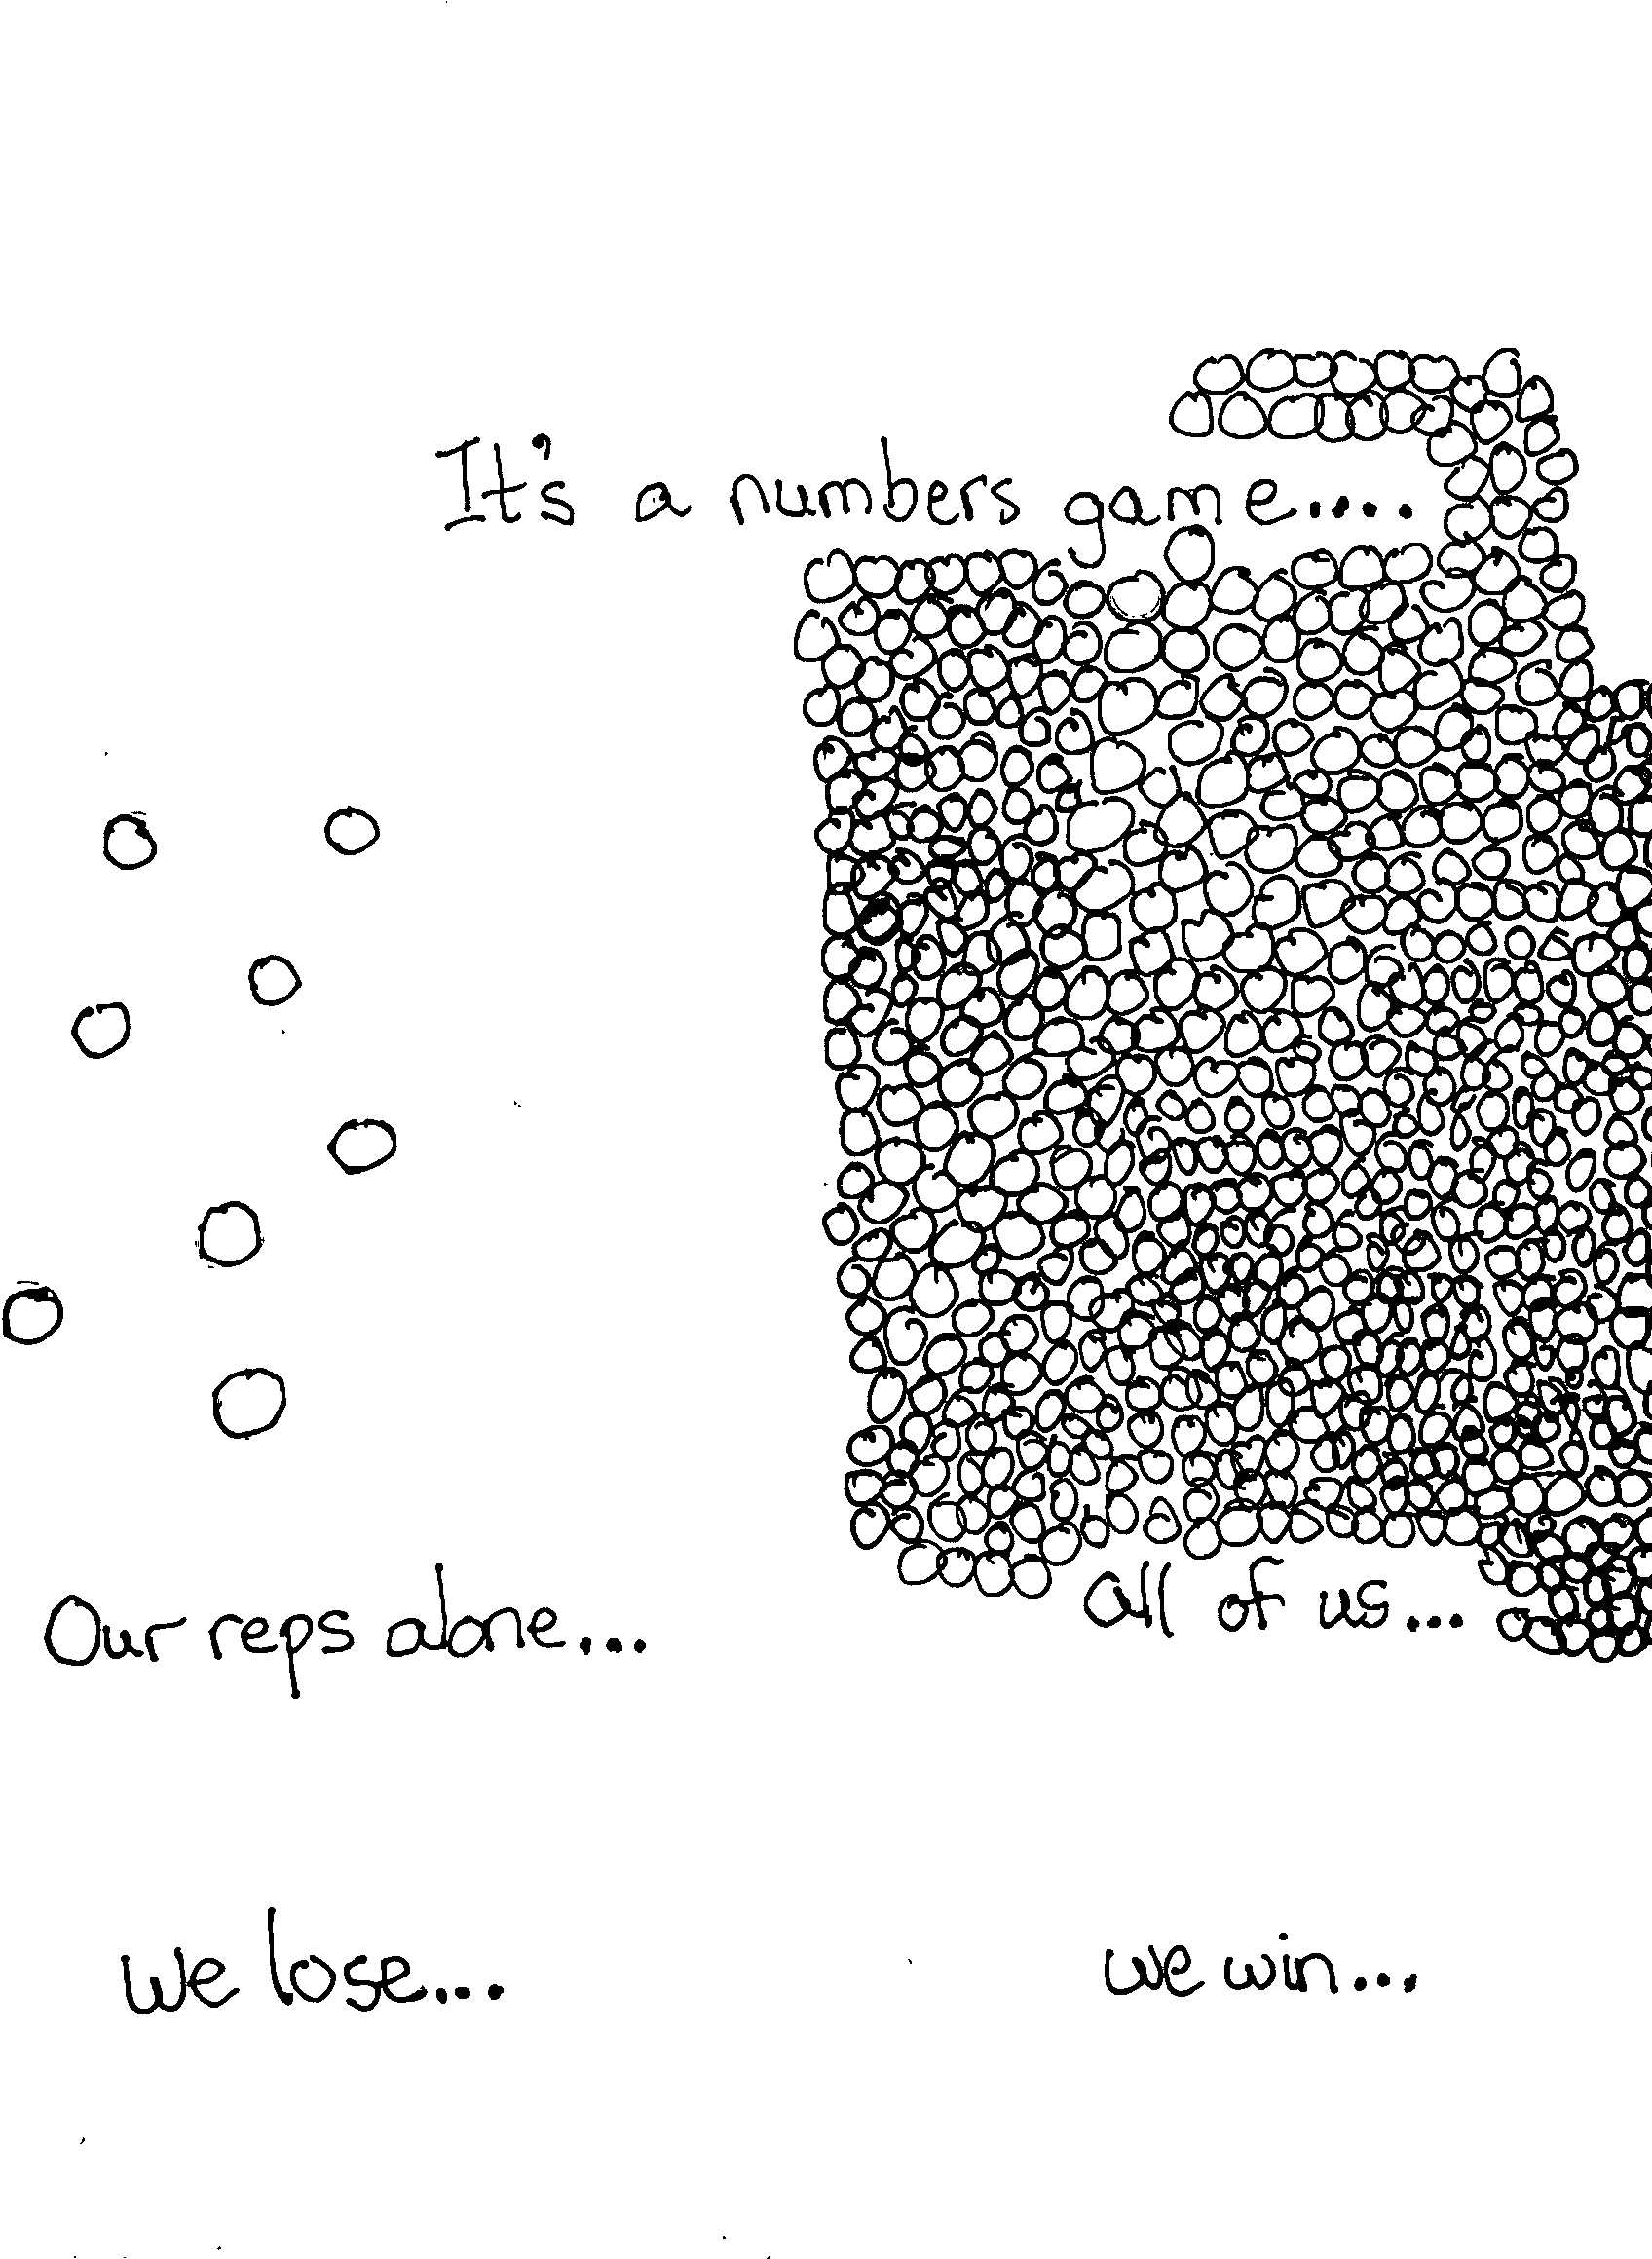 It's a numbers game....
Our reps alone...
all of us...
we lose...
we win...